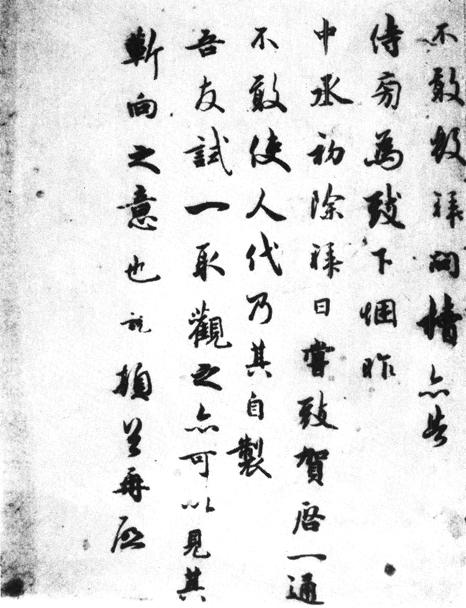 不敢數拜問亦告
侍旁為致下悃昨
中丞初除拜日嘗致賀启一通
不敢使人代乃其自製
吾友試一取觀之亦可以見其
靳向之意也說頓首再啟